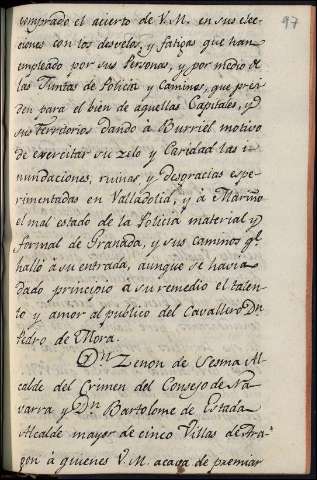 97
comprado el acierto de V.M. en sus elec-
ciones con los desvelos, y fatigas que han
empleado por sus Personas, y por medio de
las Juntas de Policia y Caminos, que presi-
den para el bien de aquellas Capitales, y
sus territorios dando à Burriel motivo
de exercitar su zelo y Caridad las i-
nundaciones, ruinas y desgracias espe-
rimentadas en Valladolid, y à Mariño
el mal estado de la Policia material y
formal de Granada, y sus caminos qe
halló à su entrada, aunque se havia
dado principio à su remedio el talen-
to y amor al publico del Cavallero Dn
Pedro de Mora.
Dn Zenon de Sesma Al-
calde del Crimen del Consejo de Na-
varra y Dn Bartolome de Estada
Alcalde mayor de cinco Villas de Ara-
gon à quienes V.M. acava de premiar